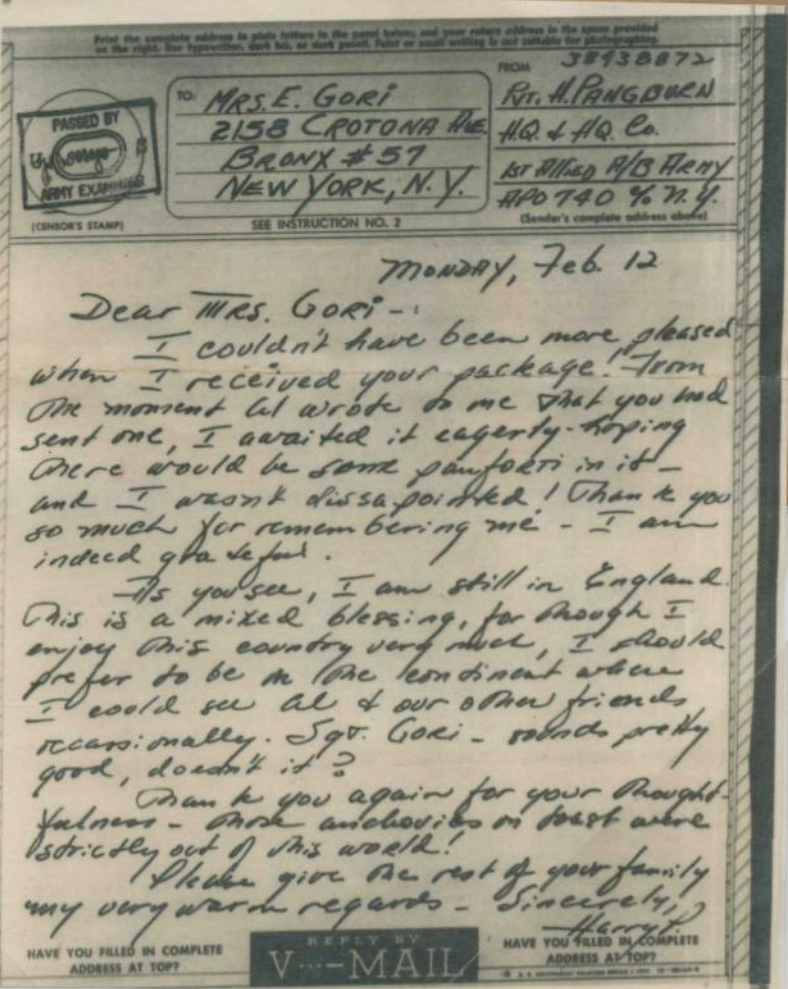 Print the complete address in plain letters in the panel below, and your return address in the space provided
on the right. Use typewriter, dark ink, or dark pencil. Faint or small writing is not suitable for photographing.
FROM 38438872
TO: MRS. E. GORI
2158 CROTONA AVE.
BRONX # 57
NEW YORK, N.Y.
PVT. H. PANGBURN
HQ. & HQ. Co.
1ST Allied A/B ARMY
APO 740 % N.Y.
PASSED BY
ARMY EXAMINER
(CENSOR'S STAMP)
SEE INSTRUCTION NO. 2
(Sender's complete address above)
MONDAY, Feb. 12
Dear MRS. GORI -
I couldn't have been more pleased
when I received your package! From
the moment Al wrote to me that you had
sent one, I awaited it eagerly - hoping
there would be some panforti in it -
and I wasn't dissapointed! Thank you
so much for remembering me - I am
indeed grateful.
As you see, I am still in England.
This is a mixed blessing, for though I
enjoy this country very much, I should
prefer to be on the continent where
I could see Al & our other friends
occassionally. Sgt. Gori - sounds pretty
good, doesn't it?
Thank you again for your thought-
fulness - those anchovies on toast were
strictly out of this world!
Please give the rest of your family
my very warm regards - Sincerely,
Harry P.
HAVE YOU FILLED IN COMPLETE
ADDRESS AT TOP?
REPLY BY
V···—MAIL
HAVE YOU FILLED IN COMPLETE
ADDRESS AT TOP?